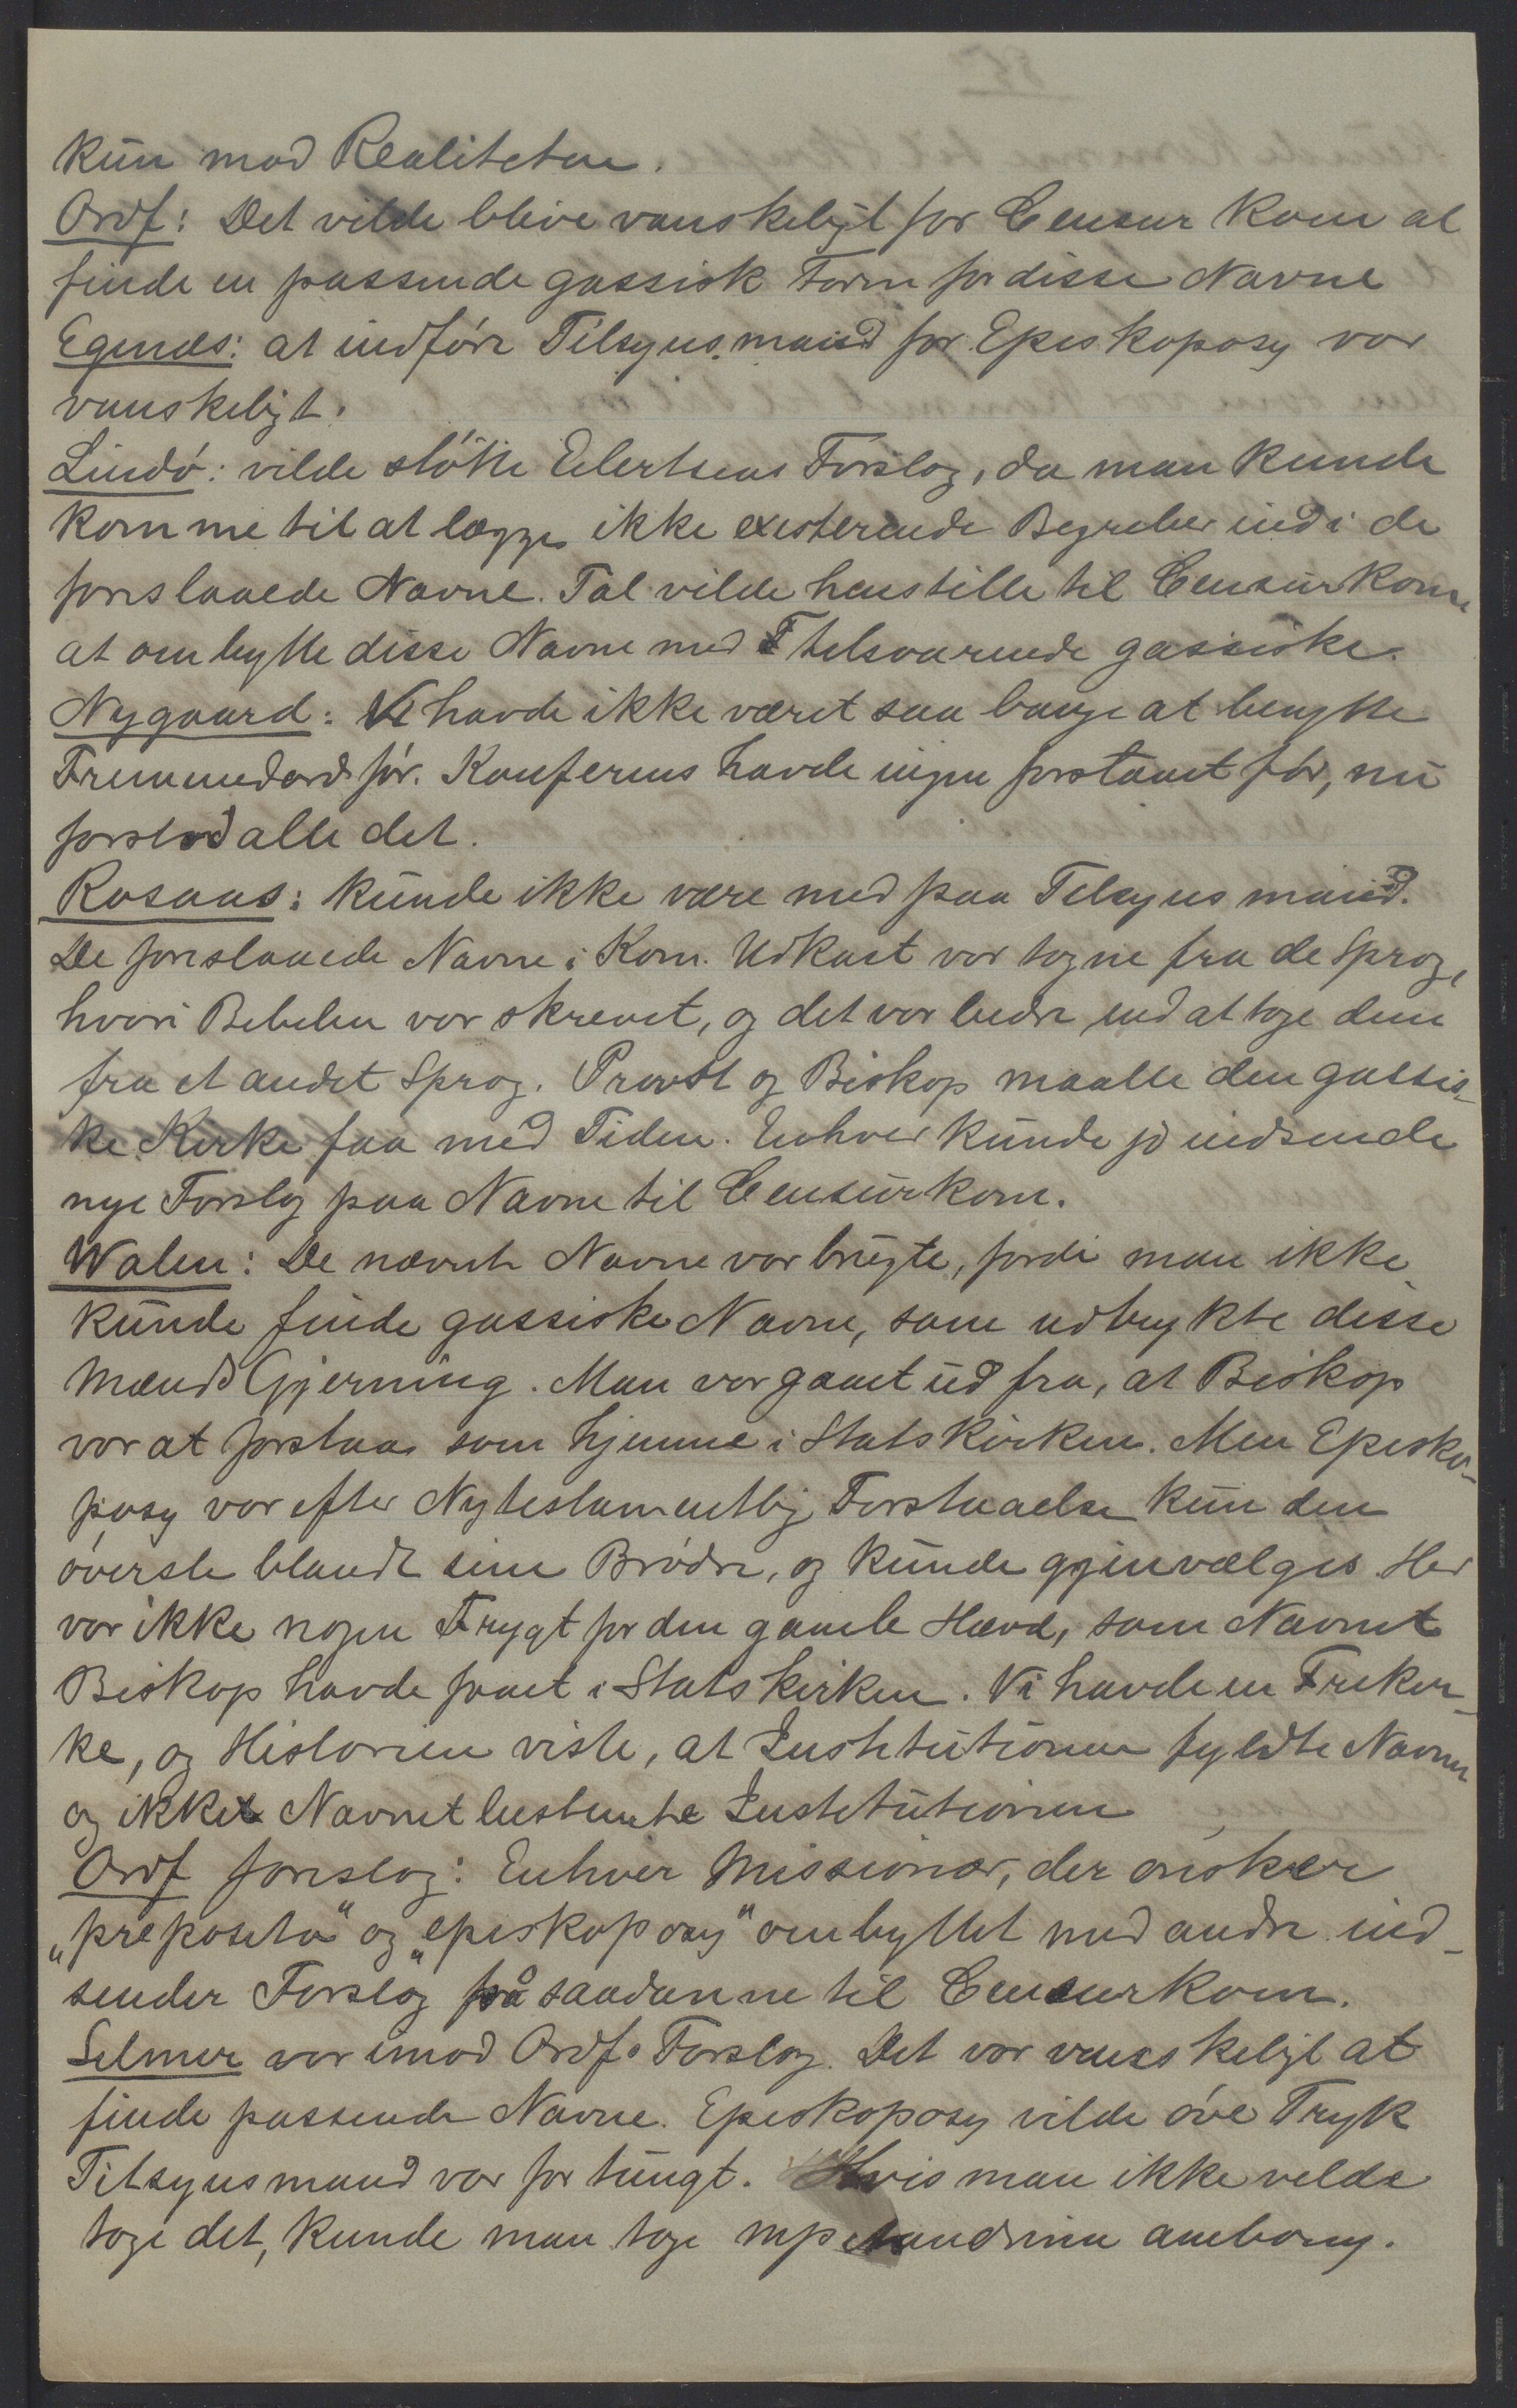 kun mod Realiteten.
Ordf: Det vilde blive vanskeligt for Censurkom at
finde en passende gassisk Form for disse Navne
Egenæs: at indføre Tilsynsmand for Episkoposy var
vanskeligt.
Lindø: vilde støtte Eilertsens Forslag, da man kunde
komme til at lægge ikke existerende Begreber ind i de
foreslaaede Navne. Tal. vilde henstille til Censurkom
at ombytte disse Navne med tilsvarende gassiske.
Nygaard: Vi havde ikke været saa bange at benytte
Fremmedord før. Konferens havde ingen forstaaet før, nu
forstod alle det.
Rosaas: kunde ikke være med paa Tilsynsmand.
De foreslaaede Navne i Kom. Udkast var tagne fra de Sprog,
hvori Bibelen var skrevet, og det var bedre end at tage dem
fra et andet Sprog. Provst og Biskop maatte den gassis-
ke Kirke faa med Tiden. Enhver kunde jo indsende
nye Forslag paa Navne til Censurkom.
Walen: De nævnte Navne var brugte, fordi man ikke
kunde finde gassiske Navne, som udtrykte disse
Mænds Gjerning. Man var gaaet ud fra, at Biskop
var at forstaa som hjemme i Statskirken. Men Episko-
posy var efter Nytestamentlig Forstaaelse kun den
øverste blandt sine Brødre, og kunde gjenvælges. Her
var ikke nogen Frygt for den gamle Hævd, som Navnet
Biskop havde faaet i Statskirken. Vi havde en Frikir-
ke, og Historien viste, at Institutionen fyldte Navnet
og ikke Navnet bestemte Institutionen
Ordf foreslog: Enhver Missionær, der ønsker
"preposita" og "episkoposy" ombyttet med andre ind-
sender Forslag på saadanne til Censurkom.
Selmer var imod Ordf. Forslag. Det var vanskeligt at
finde passende Navne. Episkoposy vilde øve Tryk
Tilsynsmand var for tungt. Hvis man ikke vilde
tage det, kunde man tage mpitandrina ambony.